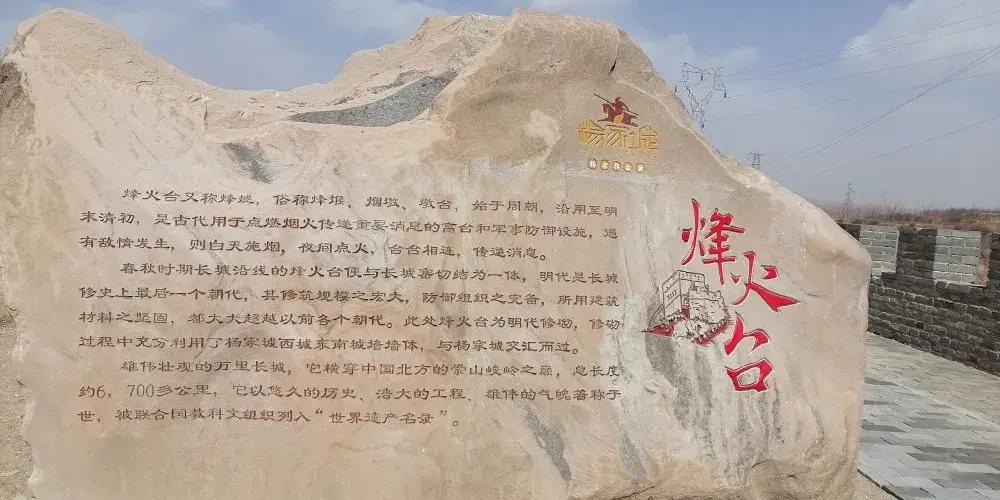 杨家城
烽火台
烽火台又称烽燧，俗称烽堠、烟墩、墩台，始于周朝，沿用至明
末清初，是古代用于点燃烟火传递重要消息的高台和军事防御设施，遇
有敌情发生，则白天施烟，夜间点火，台台相连，传递消息。
春秋时期长城沿线的烽火台便与长城密切结为一体，明代是长城
修史上最后一个朝代，其修筑规模之宏大，防御组织之完备，所用建筑
材料之坚固，都大大超越以前各个朝代。此处烽火台为明代修砌，修砌
过程中充分利用了杨家城西城东南城墙墙体，与杨家城交汇而过。
雄伟壮观的万里长城，它横穿中国北方的崇山峻岭之巅，总长度
约6，700多公里，它以悠久的历史、浩大的工程、雄伟的气魄著称于
世，被联合国教科文组织列入“世界遗产名录”。